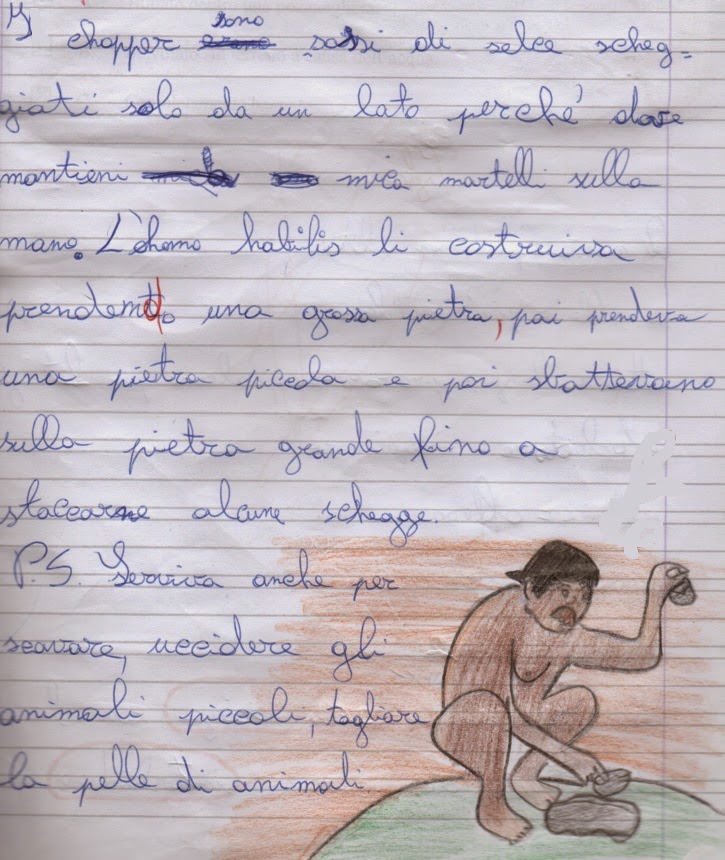 I chopper sono sassi di selce scheg=
giati solo da un lato perché dove
mantieni mica martelli sulla
mano. L'homo habilis li costruiva
prendendo una grossa pietra, poi prendeva
una pietra piccola e poi sbattevano
sulla pietra grande fino a
staccarne alcune schegge.
P.S. Serviva anche per
scavare, uccidere gli
animali piccoli, tagliare
la pelle di animali